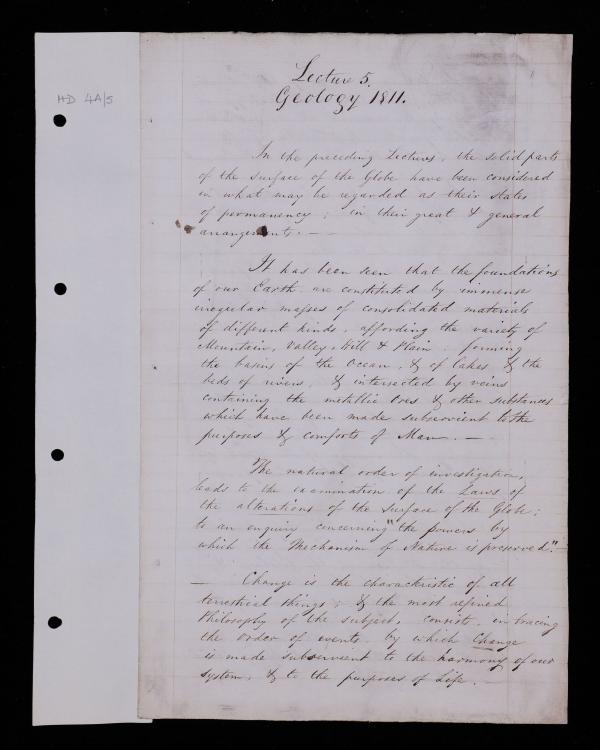 HD 4A/5
Lecture 5.
Geology 1811.
In the preceding Lectures, the solid parts
of the surface of the Globe have been considered
in what may be regarded as their states
of permanency; in their great & general
arrangements. —
It has been seen that the foundations
of our Earth are constituted by immense
irregular masses of consolidated materials
of different kinds, affording the variety of
Mountain, Valley, Hill & Plain; forming
the basins of the Ocean, & of lakes, & the
beds of rivers, & intersected by veins
containing the metallic Ores & other substances
which have been made subservient to the
purposes & comforts of Man. —
The natural order of investigation,
leads to the examination of the Laws of
the alterations of the surface of the Globe;
to an enquiry concerning "the powers by
which the Mechanism of Nature is preserved." —
— Change is the characteristic of all
terrestrial things; & the most refined
Philosophy of the subject, consists in tracing
the order of events by which Change
is made subservient to the harmony of our
system, & to the purposes of Life. —